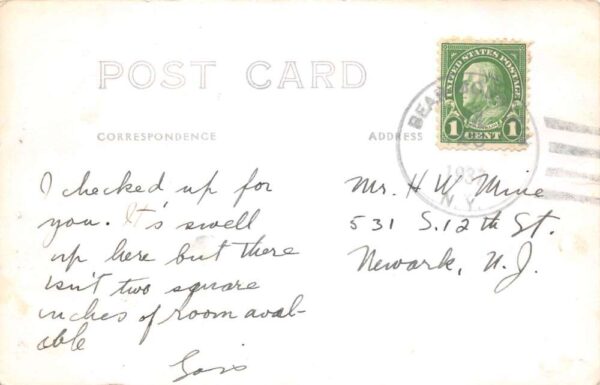 POST CARD
UNITED STATES POSTAGE
FRANKLIN
1 CENT 1
BEAR
193
N.Y.
CORRESPONDENCE
ADDRESS
I checked up for
you. It's swell
up here but there
isn't two square
inches of room avail-
able
Mr. H W
531 S. 12th St.
Newark, N.J.